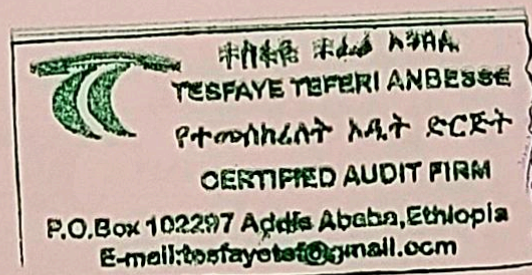 ተስፋዬ ተፈሪ አንበሴ
TESFAYE TEFERI ANBESSE
የተመሰከረለት ኦዲት ድርጅት
CERTIFIED AUDIT FIRM
P.O.Box 102297 Addis Ababa,Ethiopia
E-mail:tesfayetef@gmail.com